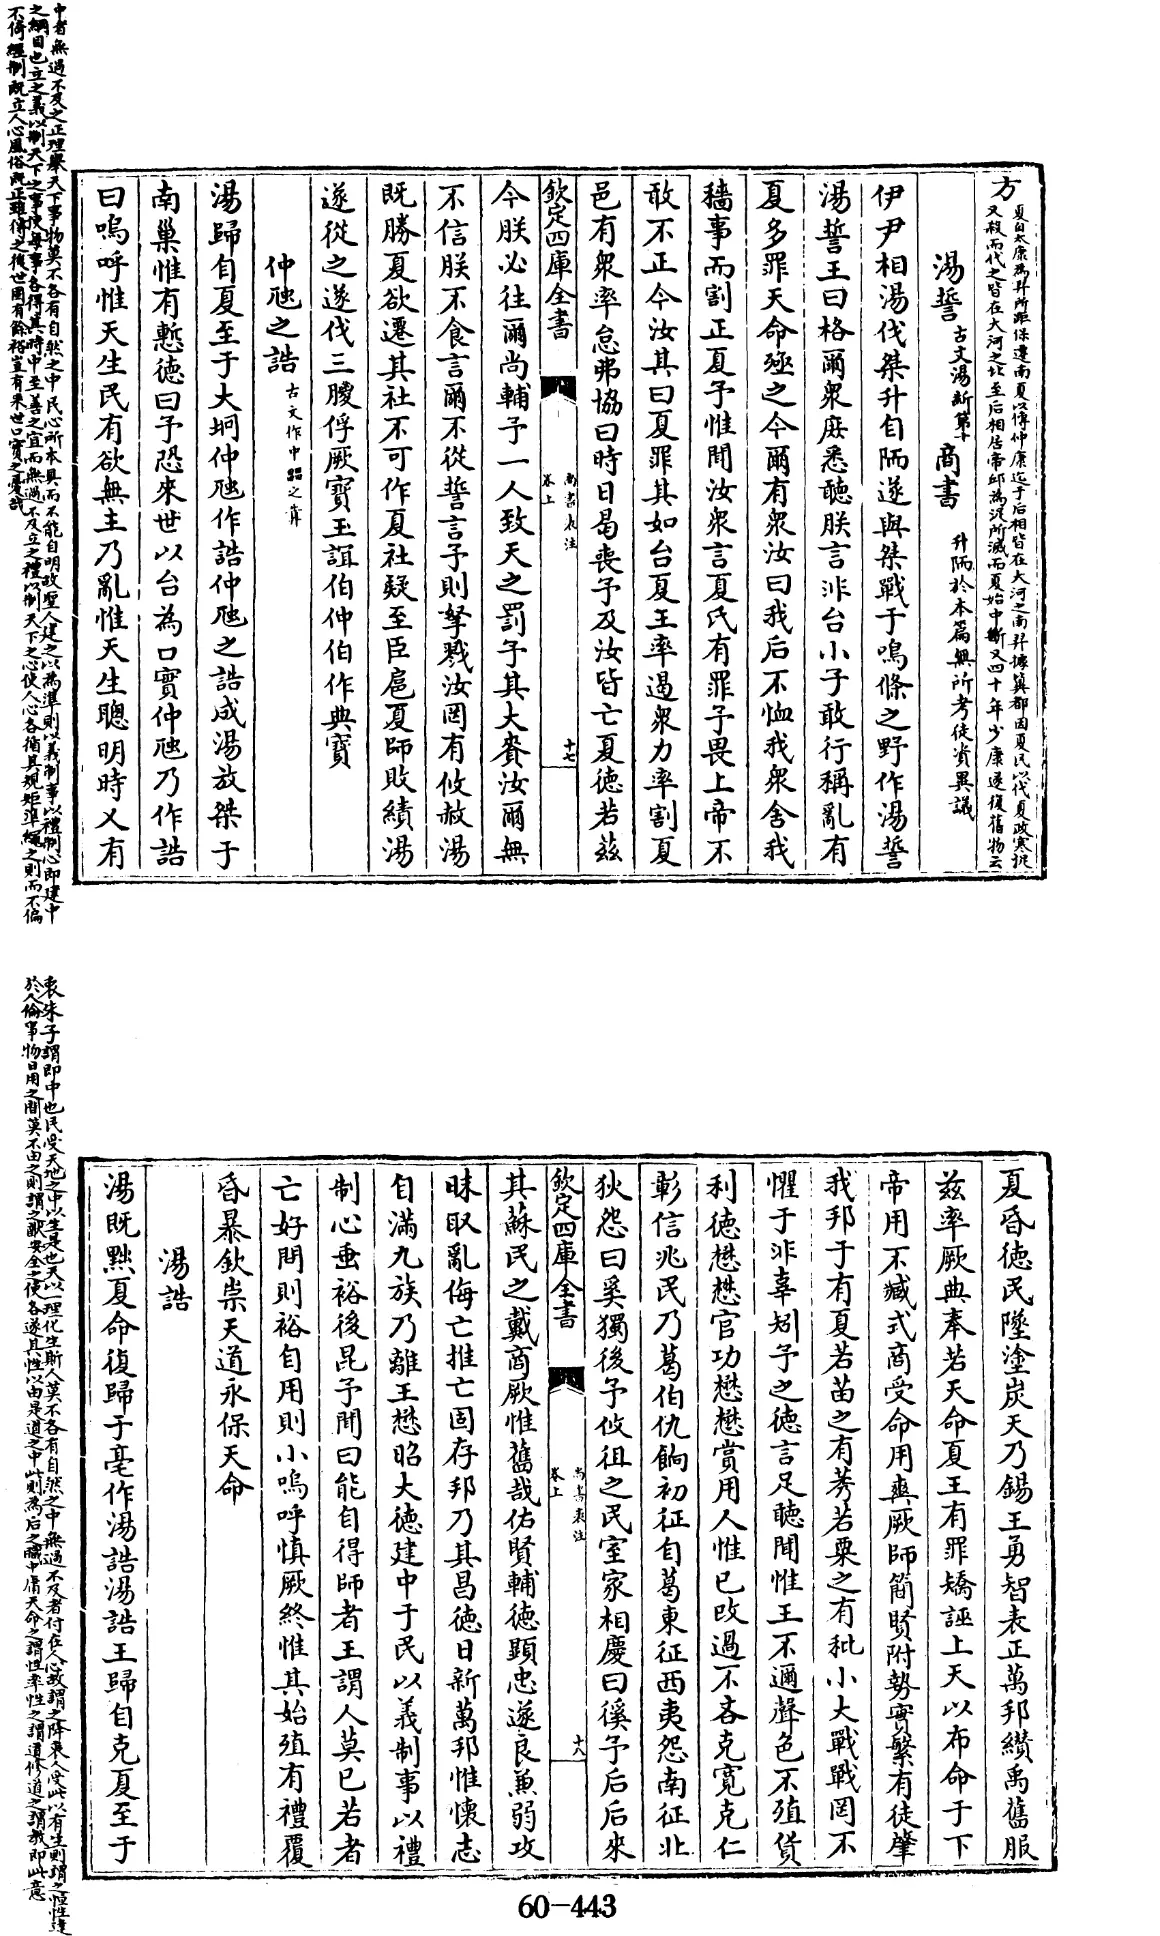 方夏自太康為羿所距保遷南夏以傳仲康迄于后相皆在大河之南羿據冀都因夏民以代夏政寒浞
又殺而代之皆在大河之北至后相居帝邱為浞所滅而夏始中斷又四十年少康遂復舊物云
湯誓古文湯斮第十商書升陑於本篇無所考徒資異議
伊尹相湯伐桀升自陑遂與桀戰于鳴條之野作湯誓
湯誓王曰格爾衆庶悉聽朕言非台小子敢行稱亂有
夏多罪天命殛之今爾有衆汝曰我后不恤我衆舍我
穡事而割正夏予惟聞汝衆言夏氏有罪予畏上帝不
敢不正今汝其曰夏罪其如台夏王率遏衆力率割夏
邑有衆率怠弗協曰時日曷喪予及汝皆亡夏德若茲
欽定四庫全書 尚書表注卷上 十七
今朕必往爾尚輔予一人致天之罰予其大賚汝爾無
不信朕不食言爾不從誓言予則孥戮汝罔有攸赦湯
既勝夏欲遷其社不可作夏社疑至臣扈夏師敗績湯
遂從之遂伐三朡俘厥寶玉誼伯仲伯作典寶
仲虺之誥古文作中𤳳之𠱭
湯歸自夏至于大坰仲虺作誥仲虺之誥成湯放桀于
南巢惟有慙德曰予恐來世以台為口實仲虺乃作誥
曰嗚呼惟天生民有欲無主乃亂惟天生聰明時乂有
中者無過不及之正理舉天下事物莫不各有自然之中民心所本具而不能自明故聖人建之以為準則以義制事以禮制心即建中
之綱目也立之義以制天下之事使每事各得其時中至善之宜而無過不及立之禮以制天下之心使人心各循其規矩準繩之則而不偏
不倚經制既立人心風俗既正雖傳之後世固有餘裕豈有來世口實之憂哉
夏昏德民墜塗炭天乃錫王勇智表正萬邦纘禹舊服
茲率厥典奉若天命夏王有罪矯誣上天以布命于下
帝用不臧式商受命用爽厥師簡賢附勢實繁有徒肇
我邦于有夏若苗之有莠若粟之有秕小大戰戰罔不
懼于非辜矧予之德言足聽聞惟王不邇聲色不殖貨
利德懋懋官功懋懋賞用人惟已改過不吝克寛克仁
彰信兆民乃葛伯仇餉初征自葛東征西夷怨南征北
狄怨曰奚獨後予攸徂之民室家相慶曰徯予后后來
欽定四庫全書 尚書表注卷上 十八
其蘇民之戴商厥惟舊哉佑賢輔德顯忠遂良兼弱攻
昧取亂侮亡推亡固存邦乃其昌德日新萬邦惟懷志
自滿九族乃離王懋昭大德建中于民以義制事以禮
制心垂裕後昆予聞曰能自得師者王謂人莫已若者
亡好問則裕自用則小嗚呼慎厥終惟其始殖有禮覆
昏暴欽崇天道永保天命
湯誥
湯既黜夏命復歸于亳作湯誥湯誥王歸自克夏至于
衷朱子謂即中也民受天地之中以生是也天以一理化生斯人莫不各有自然之中無過不及者付在人心故謂之降衷人受此以有生則謂之恒性達
於人倫事物日用之間莫不由之則謂之猷安全之使各遂其性以由是道之中此則為后之職中庸天命之謂性率性之謂道修道之謂教即此意
60-443